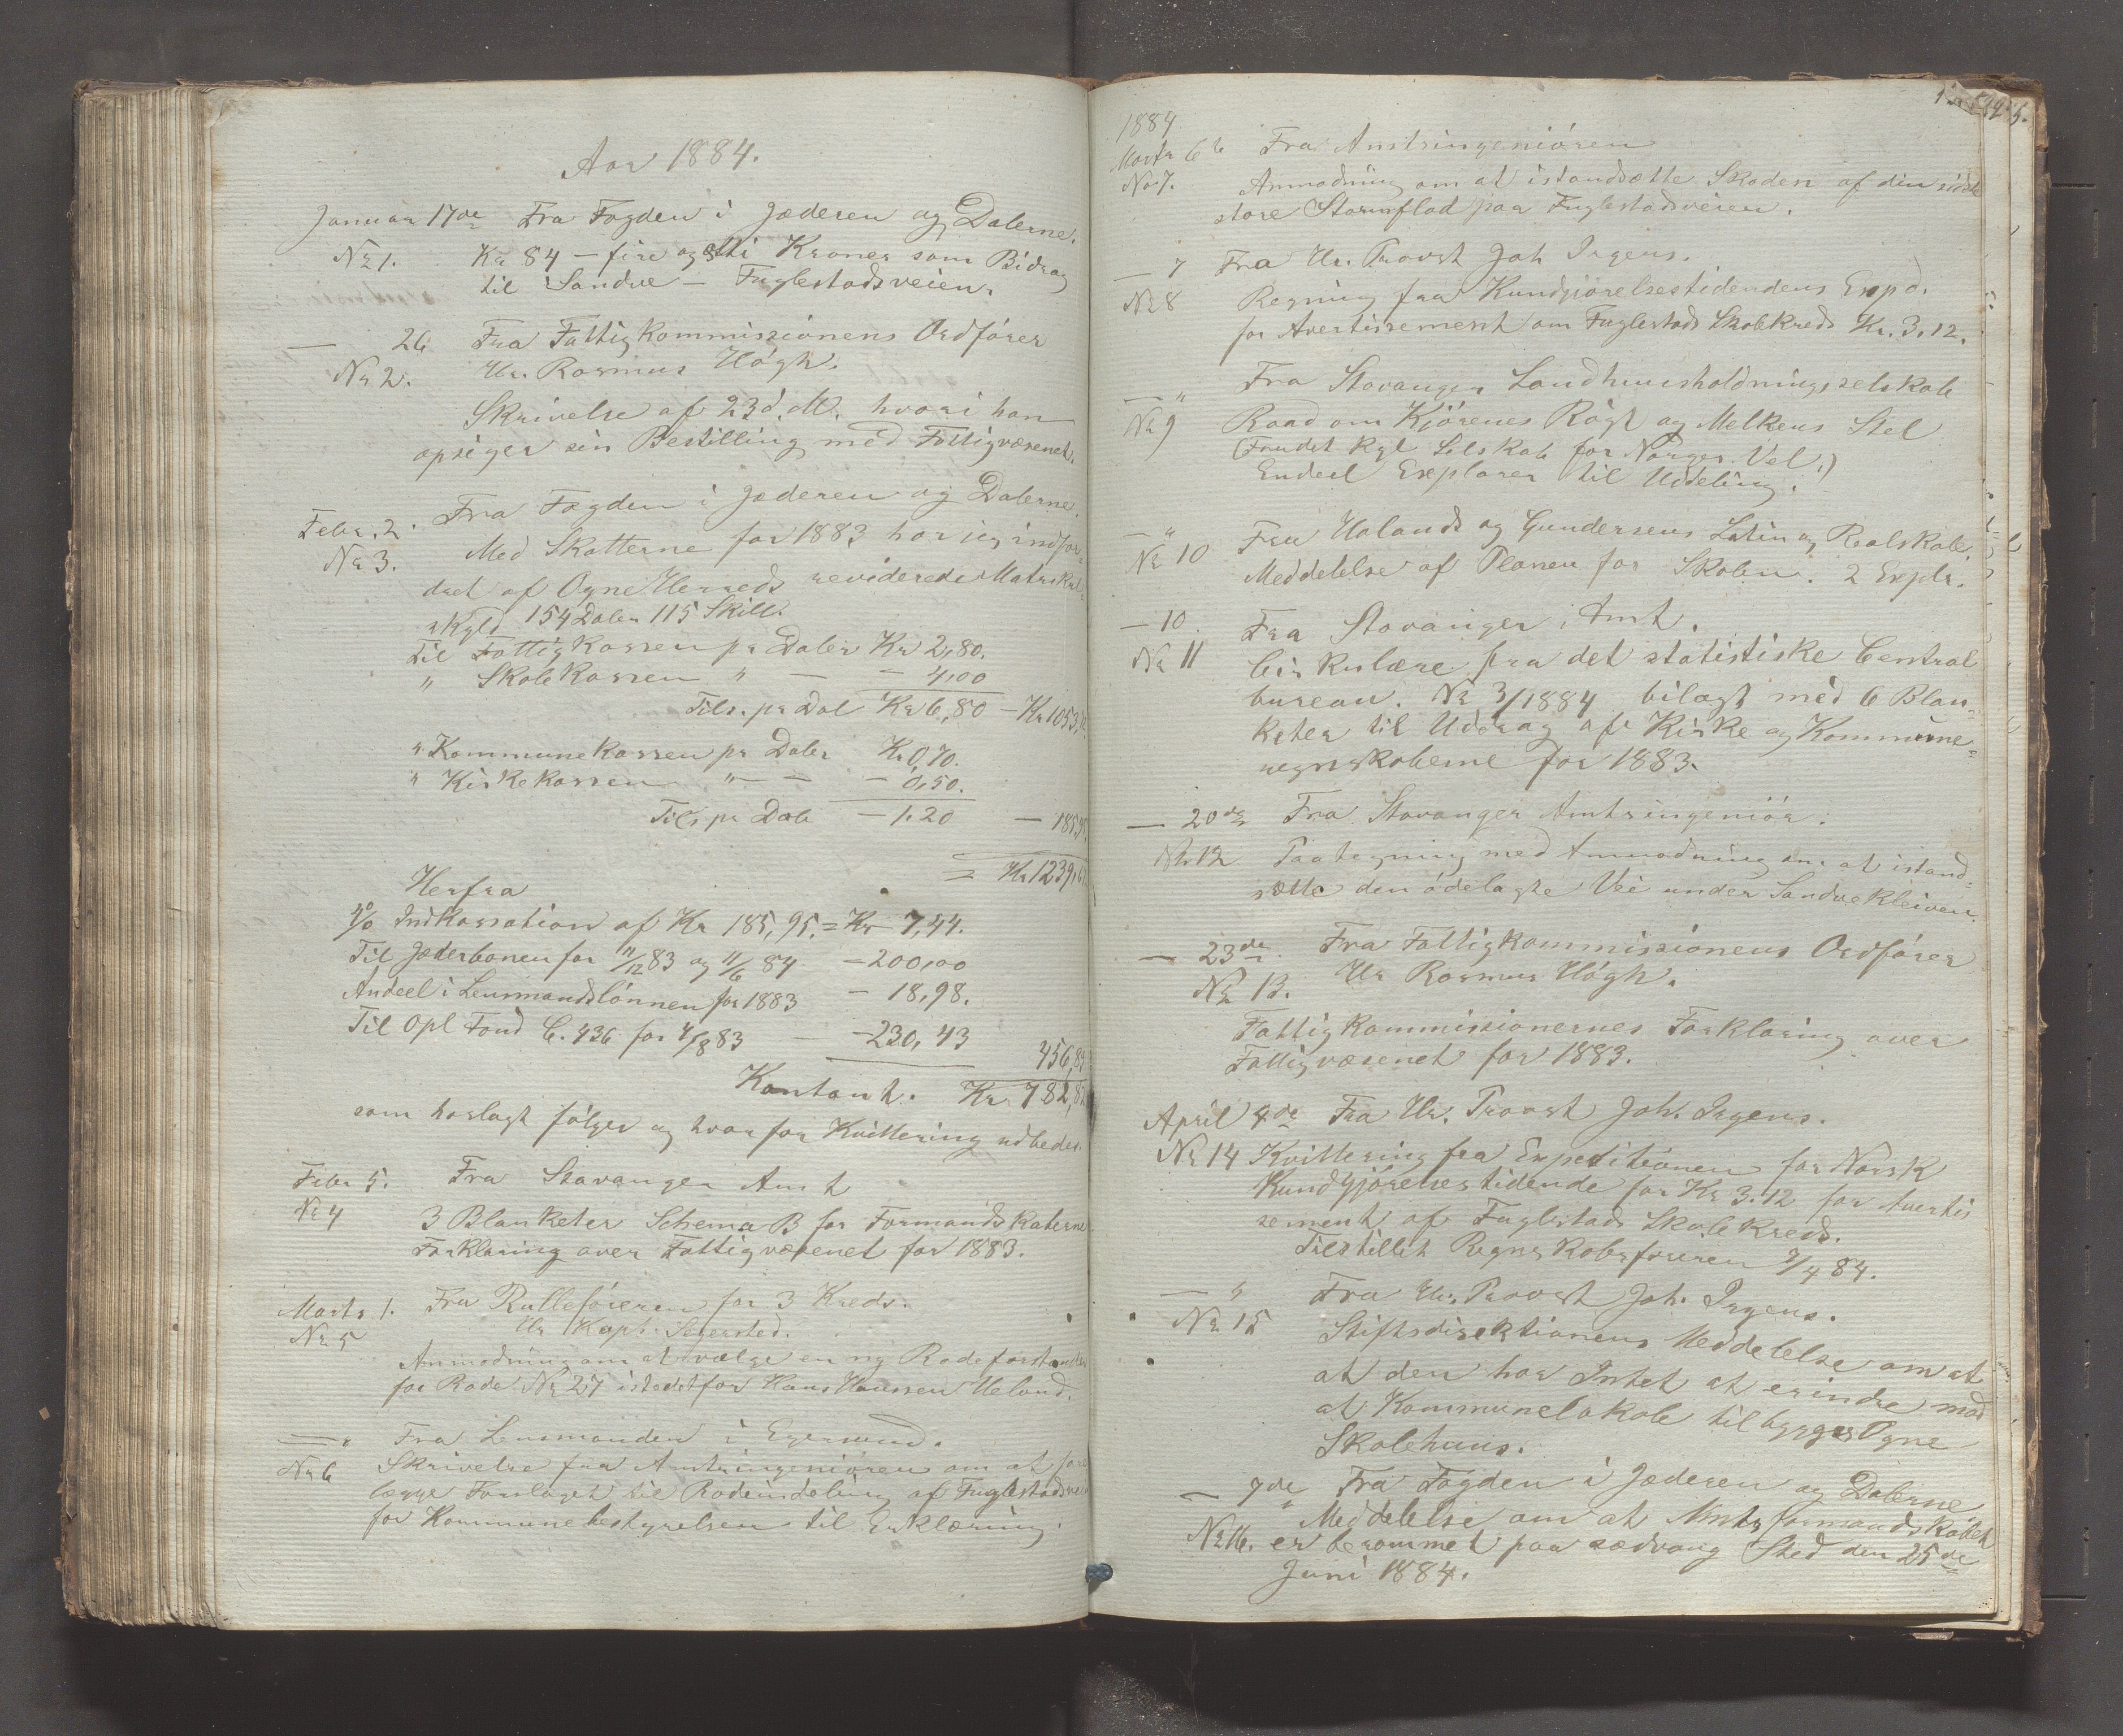 Aar 1884.
Januar 17de Fra Fogden i Jæderen og Dalerne.
No 1. Kr 84 – fire og otti Kroner som Bidrag
til Sandve – Fuglestadsveien.
— 26 Fra Fattigkommissionens Ordförer
No 2. Hr. Rasmus Högh.
Skrivelse af 23 d. M. hvori han
opsiger sin Bestilling med Fattigvæsenet.
Febr. 2. Fra Fogden i Jæderen og Dalerne.
No 3. Med Skatterne for 1883 har jeg indfor-
dret af Ogne Herreds reviderede Matrikul-
skyld 154 Daler 115 Skill.
Til Fattigkassen pr Daler Kr 2,80.
" Skolekassen " — — 4,00
Tils. pr Dal Kr 6,80 – Kr 1053,
" Kommunekassen pr Daler Kr 0,70.
" Kirkekassen " — — 0,50.
Tils. pr Dal — 1,20 — 185,95
= Kr 1239,
Herfra
4% Indkassation af Kr 185,95. = Kr 7,44.
Til Jæderbanen for 11/12 83 og 11/6 84 – 200,00
Andeel i Lensmandslönnen for 1883 – 18,98.
Til Opl Fond C. 436 for 4/8 83 — – 230,43
456,85
Kontant. Kr 782,82
som hoslagt fölger og hvorfor Kvittering udbedes.
Febr 5. Fra Stavanger Amt
No 4 3 Blanketer Schema B for Formandskaberne
Forklaring over Fattigvæsenet for 1883.
Marts 1. Fra Rulleföreren for 3 Kreds.
No 5 Hr Kapt. Segersted.
Anmodning om at vælge en ny Rodeforstander
for Rode No 27 istedetfor Hans Hanssen Helland.
— " Fra Lensmanden i Egersund.
No 6 Skrivelse fra Amtsingeniören om at fore
lægge Forslaget til Rodeinddeling af Fuglestadsvei
for Kommunebestyrelsen til Erklæring.
1884
Marts 6te Fra Amtsingeniören
No 7. Anmodning om at istandsætte Skaden af den sidste
store Stormflod paa Fuglestadsveien.
— 7 Fra Hr. Provst Joh Irgens.
No 8 Regning fra Kundgjörelsestidendens Exp.
for Avertissement om Fuglestads Skolekreds Kr. 3,12.
— " Fra Stavanger Landhuusholdningsselskab
No 9 Raad om Kjörenes Rögt og Melkens Stel
(Fra det Kgl Selskab for Norges Vel.)
Endeel Explarer til Uddeling.
— " Fra Holands og Gundersens Latin og Realskole.
No 10 Meddelelse af Planen for Skolen. 2 Explr.
— 10. Fra Stavanger Amt.
No 11 Cirkulære fra det statistiske Central
bureau. No 3/1884 bilagt med 6 Blan-
keter til Uddrag af Kirke og Kommune-
regnskaberne for 1883.
— 20de Fra Stavanger Amtsingeniör.
No. 12 Paategning med Anmodning om at istand-
sætte den ödelagte Vei under Sandvekleiven.
— 23de Fra Fattigkommissionens Ordförer
No 13. Hr Rasmus Högh.
Fattigkommissionernes Forklaring over
Fattigvæsenet for 1883.
April 4de Fra Hr. Provst Joh. Irgens.
No 14 Kvittering fra Expeditionen for Norsk
Kundgjörelsestidende for Kr 3.12 for Avertis
sement af Fuglestads Skolekreds.
Tilstillet Regnskabsföreren 9/4 84.
— " Fra Hr. Provst Joh. Irgens.
No 15 Stiftsdirektionens Meddelelse om at
at den har Intet at erindre mod
at Kommunelokale tilbygges Ogne
Skolehuus.
— 7de Fra Fogden i Jæderen og Dalerne
Meddelelse om at Amtsformandskabet
No 16. er berammet paa sædvang Sted den 25de
Juni 1884.